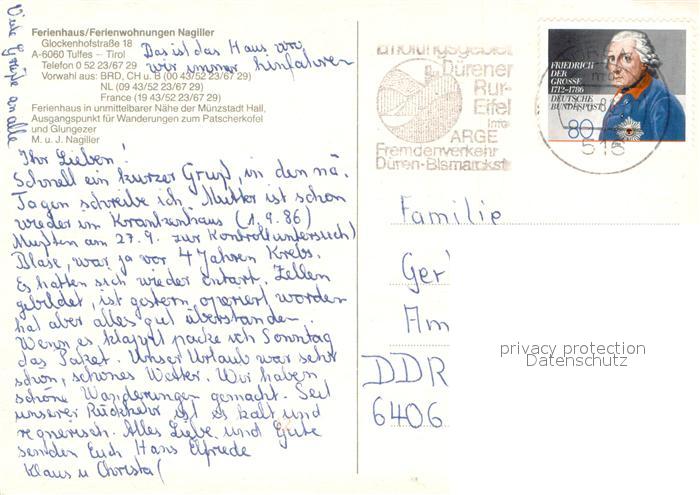 Viele Grüße an alle
Ferienhaus/Ferienwohnungen Nagiller
Glockenhofstraße 18
A-6060 Tulfes – Tirol
Telefon 0 52 23/67 29
Vorwahl aus: BRD, CH u. B (00 43/52 23/67 29)
NL (09 43/52 23/67 29)
France (19 43/52 23/67 29)
Ferienhaus in unmittelbarer Nähe der Münzstadt Hall,
Ausgangspunkt für Wanderungen zum Patscherkofel
und Glungezer
M. u. J. Nagiller
Das ist das Haus wo
wir immer hinfahren
Ihr Lieben!
Schnell ein kurzer Gruß, in den nä.
Tagen schreibe ich. Mutter ist schon
wieder im Krankenhaus (1.9.86)
Mußten am 27.9. zur Kontrolluntersuch)
Blase, war ja vor 4 Jahren Krebs.
Es hatten sich wieder entart. Zellen
gebildet, ist gestern operiert worden
hat aber alles gut überstanden.
Wenn es klappt packe ich Sonntag
das Paket. Unser Urlaub war sehr
schön, schönes Wetter. Wir haben
schöne Wanderungen gemacht. Seit
unserer Rückkehr ist es kalt und
regnerisch. Alles Liebe und Gute
senden Euch Hans Elfriede
Klaus u Christa
Erholungsgebiet
Dürener
Rur-
Eifel
Info:
ARGE
Fremdenverkehr
Düren-Bismarckst
FRIEDRICH
DER
GROSSE
1712–1786
DEUTSCHE
BUNDESPOST
80
516
Familie
Ger
Am
DDR
6406
privacy protection
Datenschutz